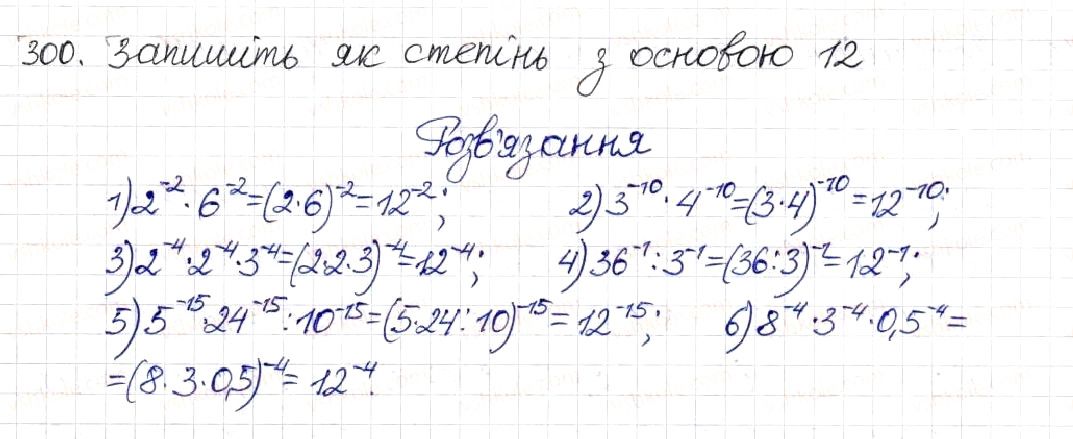 300. Запишіть як степінь з основою 12
Розв'язання
1) 2⁻²·6⁻²=(2·6)⁻²=12⁻²; 2) 3⁻¹⁰·4⁻¹⁰=(3·4)⁻¹⁰=12⁻¹⁰;
3) 2⁻⁴·2⁻⁴·3⁻⁴=(2·2·3)⁻⁴=12⁻⁴; 4) 36⁻¹:3⁻¹=(36:3)⁻¹=12⁻¹;
5) 5⁻¹⁵·24⁻¹⁵:10⁻¹⁵=(5·24:10)⁻¹⁵=12⁻¹⁵; 6) 8⁻⁴·3⁻⁴·0,5⁻⁴=
=(8·3·0,5)⁻⁴=12⁻⁴.